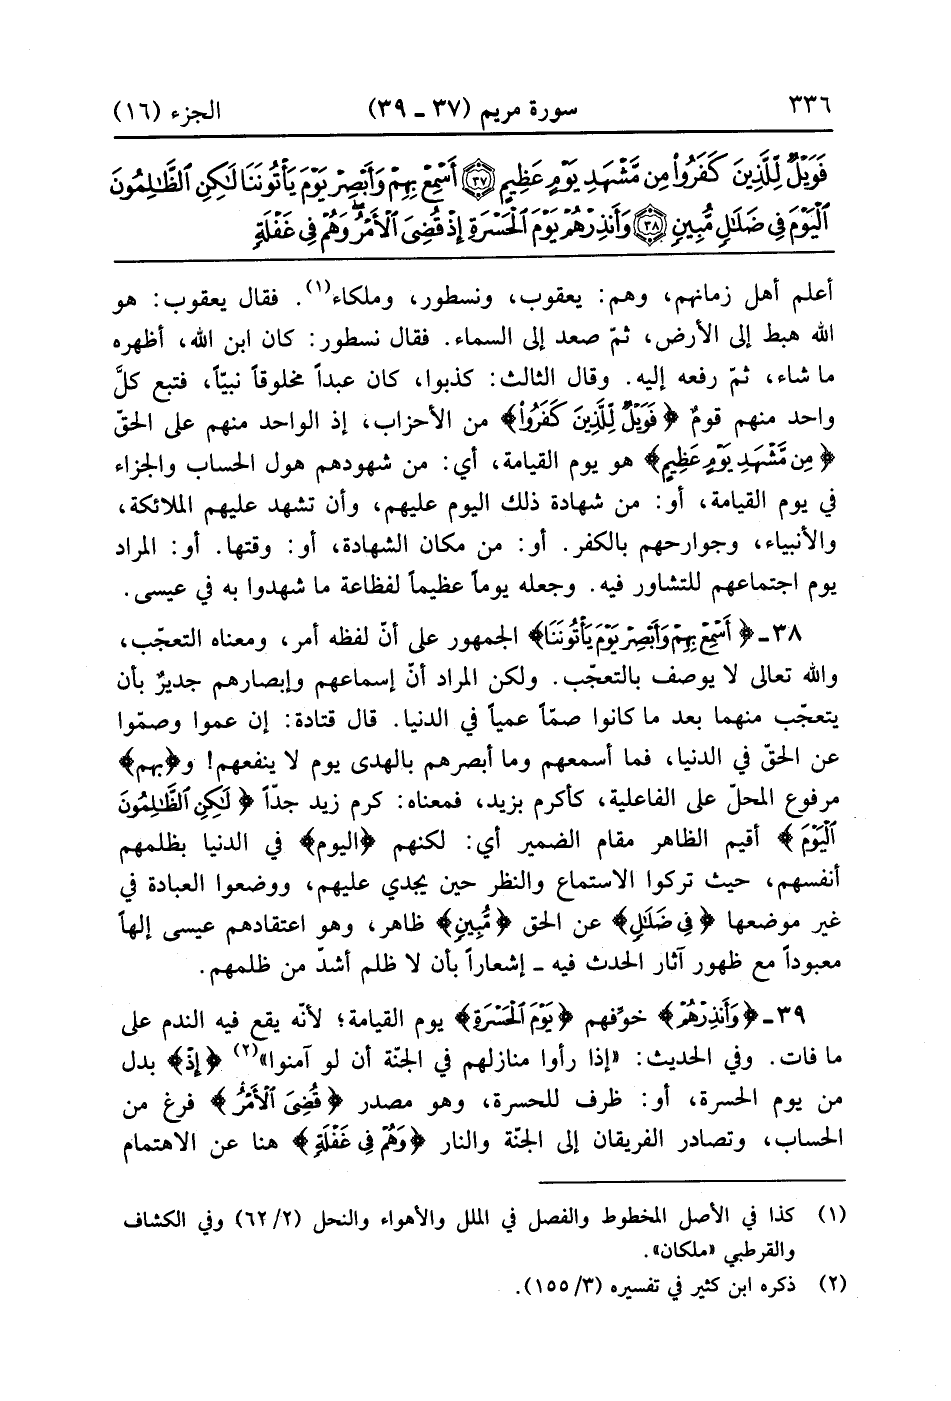 ٣٣٦ سورة مريم (٣٧ ـ ٣٩) الجزء (١٦)
فَوَيْلٌ لِّلَّذِينَ كَفَرُوا۟ مِن مَّشْهَدِ يَوْمٍ عَظِيمٍ ﴿٣٧﴾ أَسْمِعْ بِهِمْ وَأَبْصِرْ يَوْمَ يَأْتُونَنَا لَـٰكِنِ ٱلظَّـٰلِمُونَ
ٱلْيَوْمَ فِى ضَلَـٰلٍ مُّبِينٍ ﴿٣٨﴾ وَأَنذِرْهُمْ يَوْمَ ٱلْحَسْرَةِ إِذْ قُضِىَ ٱلْأَمْرُ وَهُمْ فِى غَفْلَةٍ
أعلم أهل زمانهم، وهم: يعقوب، ونسطور، وملكاء(١). فقال يعقوب: هو
الله هبط إلى الأرض، ثمّ صعد إلى السماء. فقال نسطور: كان ابن الله، أظهره
ما شاء، ثمّ رفعه إليه. وقال الثالث: كذبوا، كان عبداً مخلوقاً نبيّاً، فتبع كلَّ
واحد منهم قومٌ ﴿فَوَيْلٌ لِّلَّذِينَ كَفَرُوا۟﴾ من الأحزاب، إذ الواحد منهم على الحقّ
﴿مِن مَّشْهَدِ يَوْمٍ عَظِيمٍ﴾ هو يوم القيامة، أي: من شهودهم هول الحساب والجزاء
في يوم القيامة، أو: من شهادة ذلك اليوم عليهم، وأن تشهد عليهم الملائكة،
والأنبياء، وجوارحهم بالكفر. أو: من مكان الشهادة، أو: وقتها. أو: المراد
يوم اجتماعهم للتشاور فيه. وجعله يوماً عظيماً لفظاعة ما شهدوا به في عيسى.
٣٨ ـ ﴿أَسْمِعْ بِهِمْ وَأَبْصِرْ يَوْمَ يَأْتُونَنَا﴾ الجمهور على أنّ لفظه أمر، ومعناه التعجّب،
والله تعالى لا يوصف بالتعجّب. ولكن المراد أنّ إسماعهم وإبصارهم جديرٌ بأن
يتعجّب منهما بعد ما كانوا صمّاً عمياً في الدنيا. قال قتادة: إن عموا وصمّوا
عن الحقّ في الدنيا، فما أسمعهم وما أبصرهم بالهدى يوم لا ينفعهم! و﴿بهم﴾
مرفوع المحلّ على الفاعلية، كأكرم بزيد، فمعناه: كرم زيد جدّاً ﴿لَـٰكِنِ ٱلظَّـٰلِمُونَ
ٱلْيَوْمَ﴾ أقيم الظاهر مقام الضمير أي: لكنهم ﴿اليوم﴾ في الدنيا بظلمهم
أنفسهم، حيث تركوا الاستماع والنظر حين يجدي عليهم، ووضعوا العبادة في
غير موضعها ﴿فِى ضَلَـٰلٍ﴾ عن الحق ﴿مُّبِينٍ﴾ ظاهر، وهو اعتقادهم عيسى إلهاً
معبوداً مع ظهور آثار الحدث فيه ـ إشعاراً بأن لا ظلم أشدّ من ظلمهم.
٣٩ ـ ﴿وَأَنذِرْهُمْ﴾ خوّفهم ﴿يَوْمَ ٱلْحَسْرَةِ﴾ يوم القيامة؛ لأنّه يقع فيه الندم على
ما فات. وفي الحديث: «إذا رأوا منازلهم في الجنّة أن لو آمنوا»(٢) ﴿إِذْ﴾ بدل
من يوم الحسرة، أو: ظرف للحسرة، وهو مصدر ﴿قُضِىَ ٱلْأَمْرُ﴾ فرغ من
الحساب، وتصادر الفريقان إلى الجنّة والنار ﴿وَهُمْ فِى غَفْلَةٍ﴾ هنا عن الاهتمام
(١) كذا في الأصل المخطوط والفصل في الملل والأهواء والنحل (٦٢/٢) وفي الكشاف
والقرطبي «ملكان».
(٢) ذكره ابن كثير في تفسيره (١٥٥/٣).